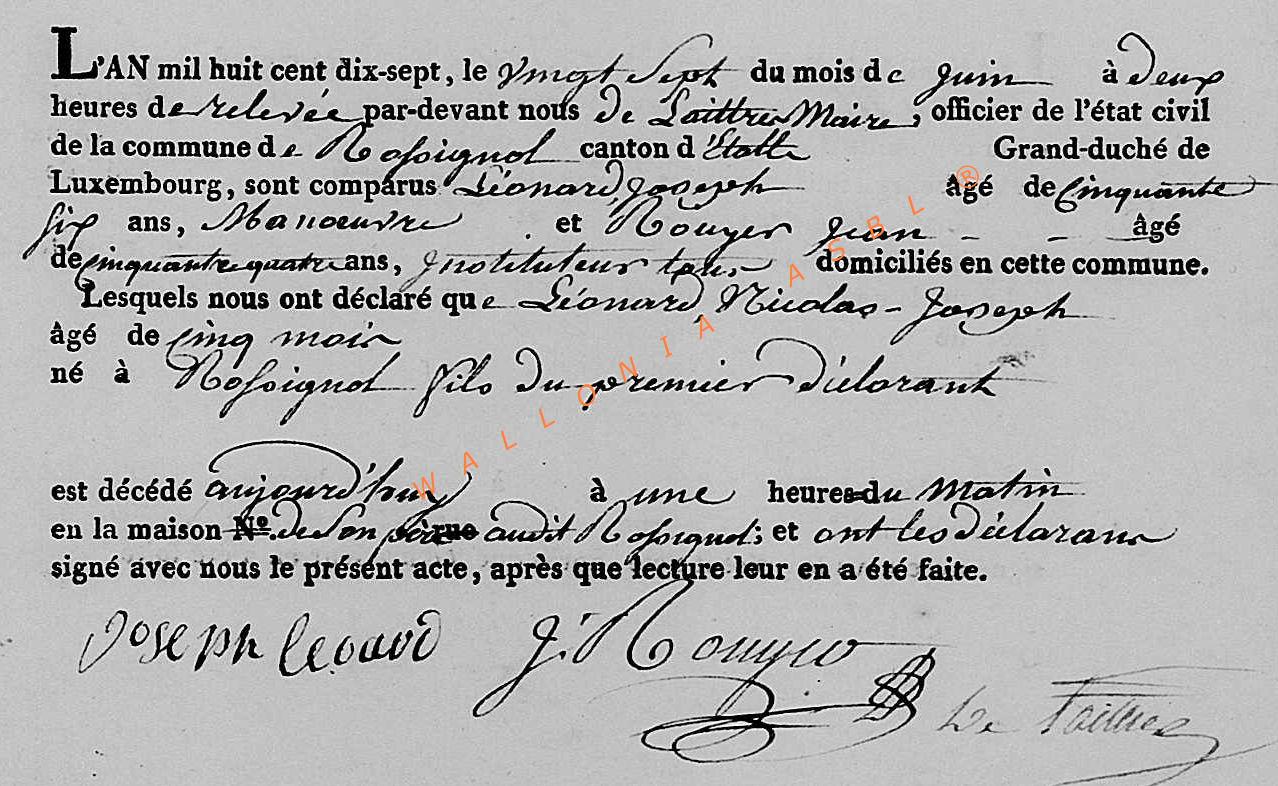 L'AN mil huit cent dix-sept, le vingt sept du mois de juin à deux
heures de relevée par-devant nous de Laittres Maire, officier de l'état civil
de la commune de Rossignol canton d'Etalle Grand-duché de
Luxembourg, sont comparus Léonard, Joseph âgé de cinquante
six ans, Manoeuvre et Rouyer Jean - - âgé
de cinquante quatre ans, Instituteur tous domiciliés en cette commune.
Lesquels nous ont déclaré que Léonard, Nicolas-Joseph
âgé de cinq mois
né à Rossignol fils du premier déclarant
est décédé aujourd'huy à une heures du Matin
en la maison N.º de son père rue audit Rossignol; et ont les déclarans
signé avec nous le présent acte, après que lecture leur en a été faite.
Joseph Leonard J. Rouyer
De Laittres
WALLONIA ASBL ®